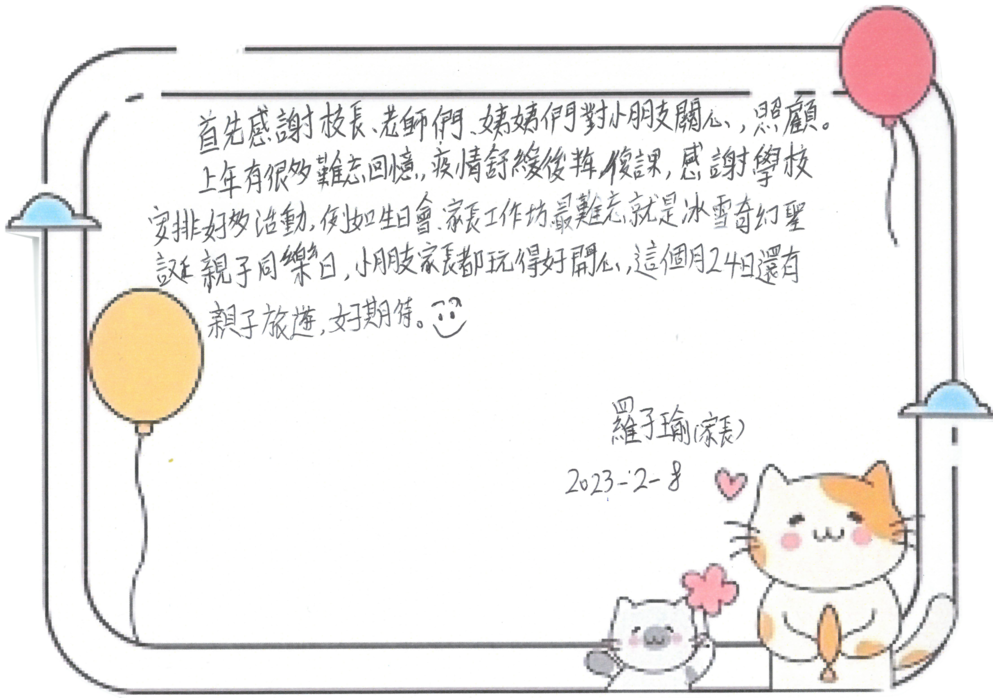 首先感謝校長、老師們、姨姨們對小朋友關心,照顧。
上年有很多難忘回憶,疫情舒緩後 復課,感謝學校
安排好多活動,例如生日會、家長工作坊最難忘就是冰雪奇幻聖
誕親子同樂日,小朋友家長都玩得好開心,這個月24日還有
親子旅遊,好期待。
羅子瑜(家長)
2023-2-8